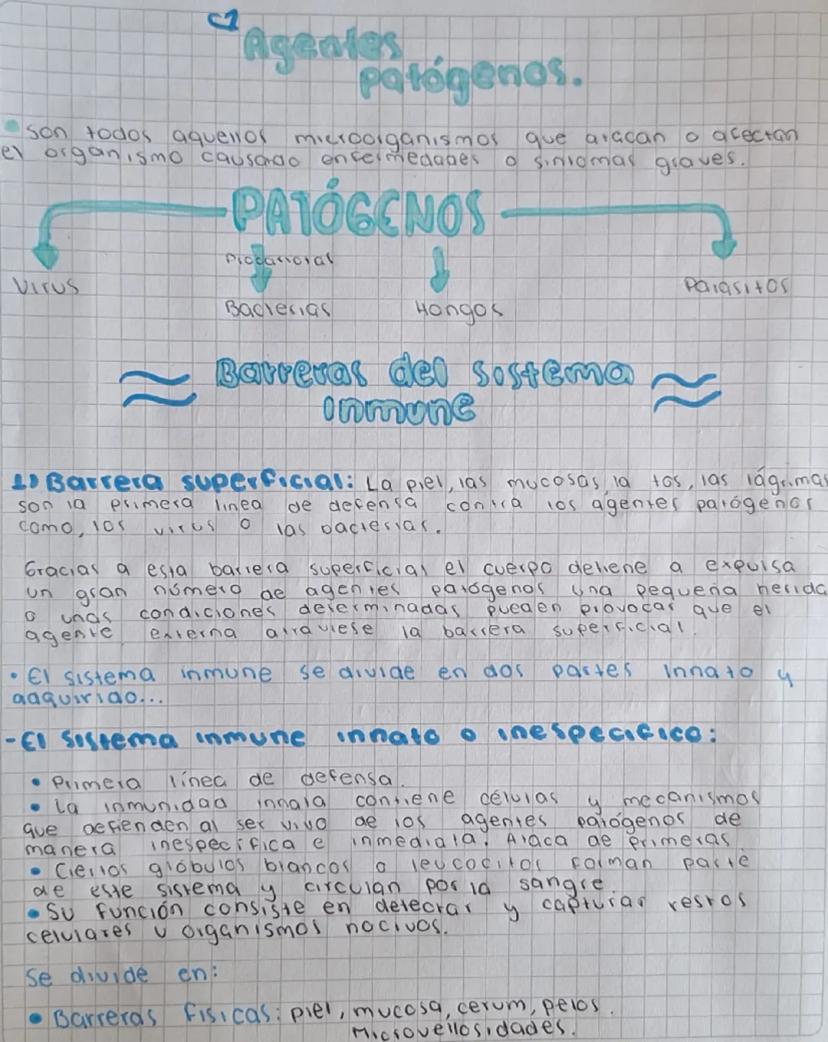 Agentes
patógenos.
son todos aquellos microorganismos que atacan o afectan
el organismo causando enfermedades o síntomas graves.
PATÓGENOS
Virus
Bacterias
Hongos
Parasitos
Barreras del sistema
inmune
1) Barrera superficial: La piel, las mucosas, la tos, las lágrimas
son la primera linea de defensa contra los agentes patógenos
como, los virus o las bacterias.
Gracias a esta barrera superficial el cuerpo detiene a expulsa
un gran número de agentes patógenos una pequeña herida
o unas condiciones determinadas pueden provocar que el
agente externa atraviese la barrera superficial.
• El sistema inmune se divide en dos partes innato y
adquirido...
- El sistema inmune innato o inespecifico:
• Primera línea de defensa.
• La inmunidad innata contiene células y mecanismos
que defienden al ser vivo de los agentes patógenos de
manera inespecifica e inmediata. Ataca de primeras.
• Ciertos glóbulos blancos o leucocitos forman parte
de este sistema y circulan por la sangre.
• Su función consiste en detectar y capturar restos
celulares u organismos nocivos.
Se divide en:
• Barreras fisicas: piel, mucosa, cerum, pelos.
Microvellosidades.